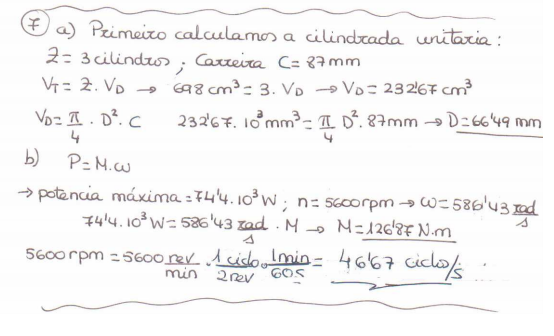 ⑦ a) Primeiro calculamos a cilindrada unitaria:
Z = 3 cilindros ; Carreira C = 87mm
V_T = Z · V_D → 698 cm³ = 3 · V_D → V_D = 232'67 cm³
V_D = π/4 · D² · C 232'67 · 10³ mm³ = π/4 D² · 87mm → D = 66'49 mm
b) P = M·ω
→ potencia máxima = 74'4·10³ W ; n = 5600rpm → ω = 586'43 rad/s
74'4·10³ W = 586'43 rad/s · M → M = 126'87 N·m
5600rpm = 5600 rev/min · 1 ciclo/2rev · 1min/60s = 46'67 ciclo/s